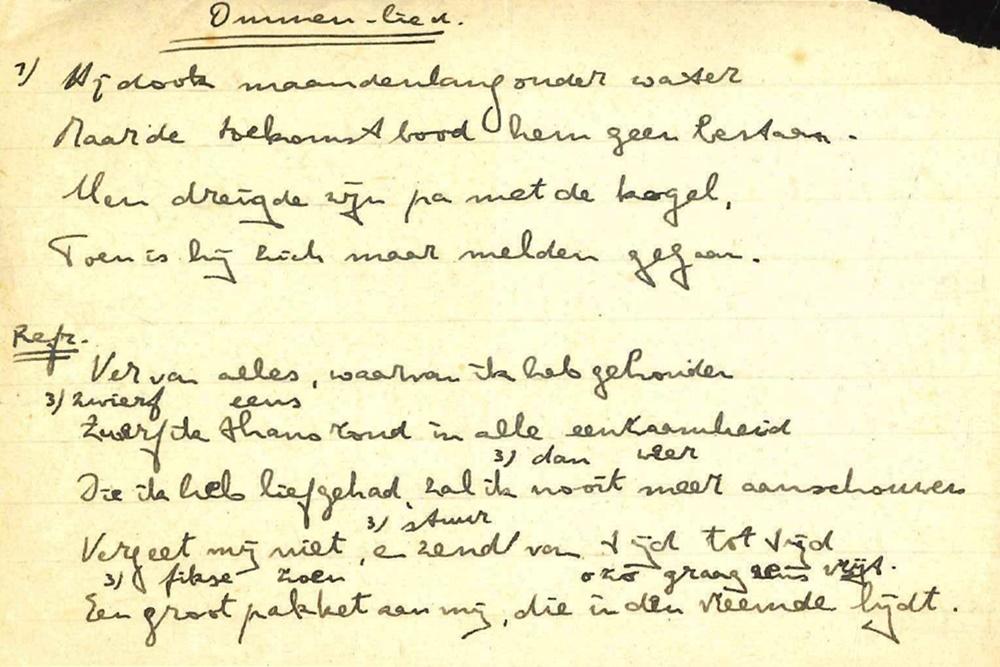 Ommen-lied.
1) Hij dook maandenlang onder water
Maar de toekomst bood hem geen bestaan.
Men dreigde zijn pa met de kogel,
Toen is hij zich maar melden gegaan.
Refr.
Ver van alles, waarvan ik heb gehouden
3) zwierf eens
Zwerf ik thans rond in alle eenzaamheid
3) dan weer
Die ik heb liefgehad, zal ik nooit meer aanschouwen
3) 'stuur
Vergeet mij niet, en zend' van tijd tot tijd
3) fikse zoen o zo graag eens vrijt.
Een groot pakket aan mij, die in den vreemde lijdt.